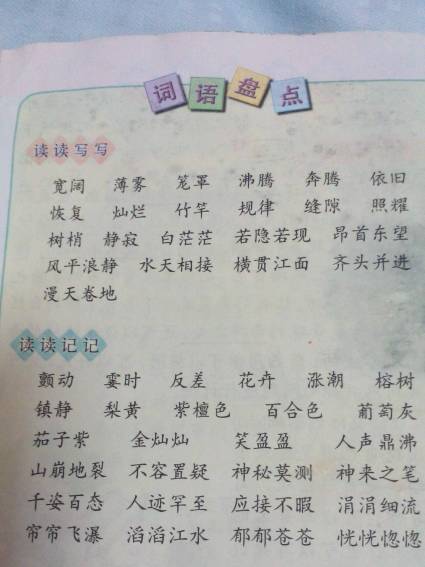 词语盘点
读读写写
宽阔 薄雾 笼罩 沸腾 奔腾 依旧
恢复 灿烂 竹竿 规律 缝隙 照耀
树梢 静寂 白茫茫 若隐若现 昂首东望
风平浪静 水天相接 横贯江面 齐头并进
漫天卷地
读读记记
颤动 霎时 反差 花卉 涨潮 榕树
镇静 梨黄 紫檀色 百合色 葡萄灰
茄子紫 金灿灿 笑盈盈 人声鼎沸
山崩地裂 不容置疑 神秘莫测 神来之笔
千姿百态 人迹罕至 应接不暇 涓涓细流
帘帘飞瀑 滔滔江水 郁郁苍苍 恍恍惚惚